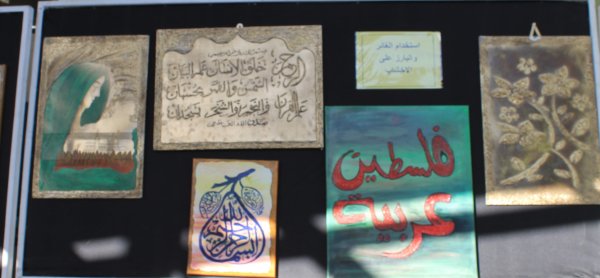 بسم الله الرحمن الرحيم
الرحمن خلق الانسان علمه البيان
الشمس والقمر بحسبان
علم القرآن والنجم والشجر يسجدان
صدق الله العظيم
استخدام الغائر
والبارز على
الاخشاب
بسم الله الرحمن الرحيم
فلسطين
عربية